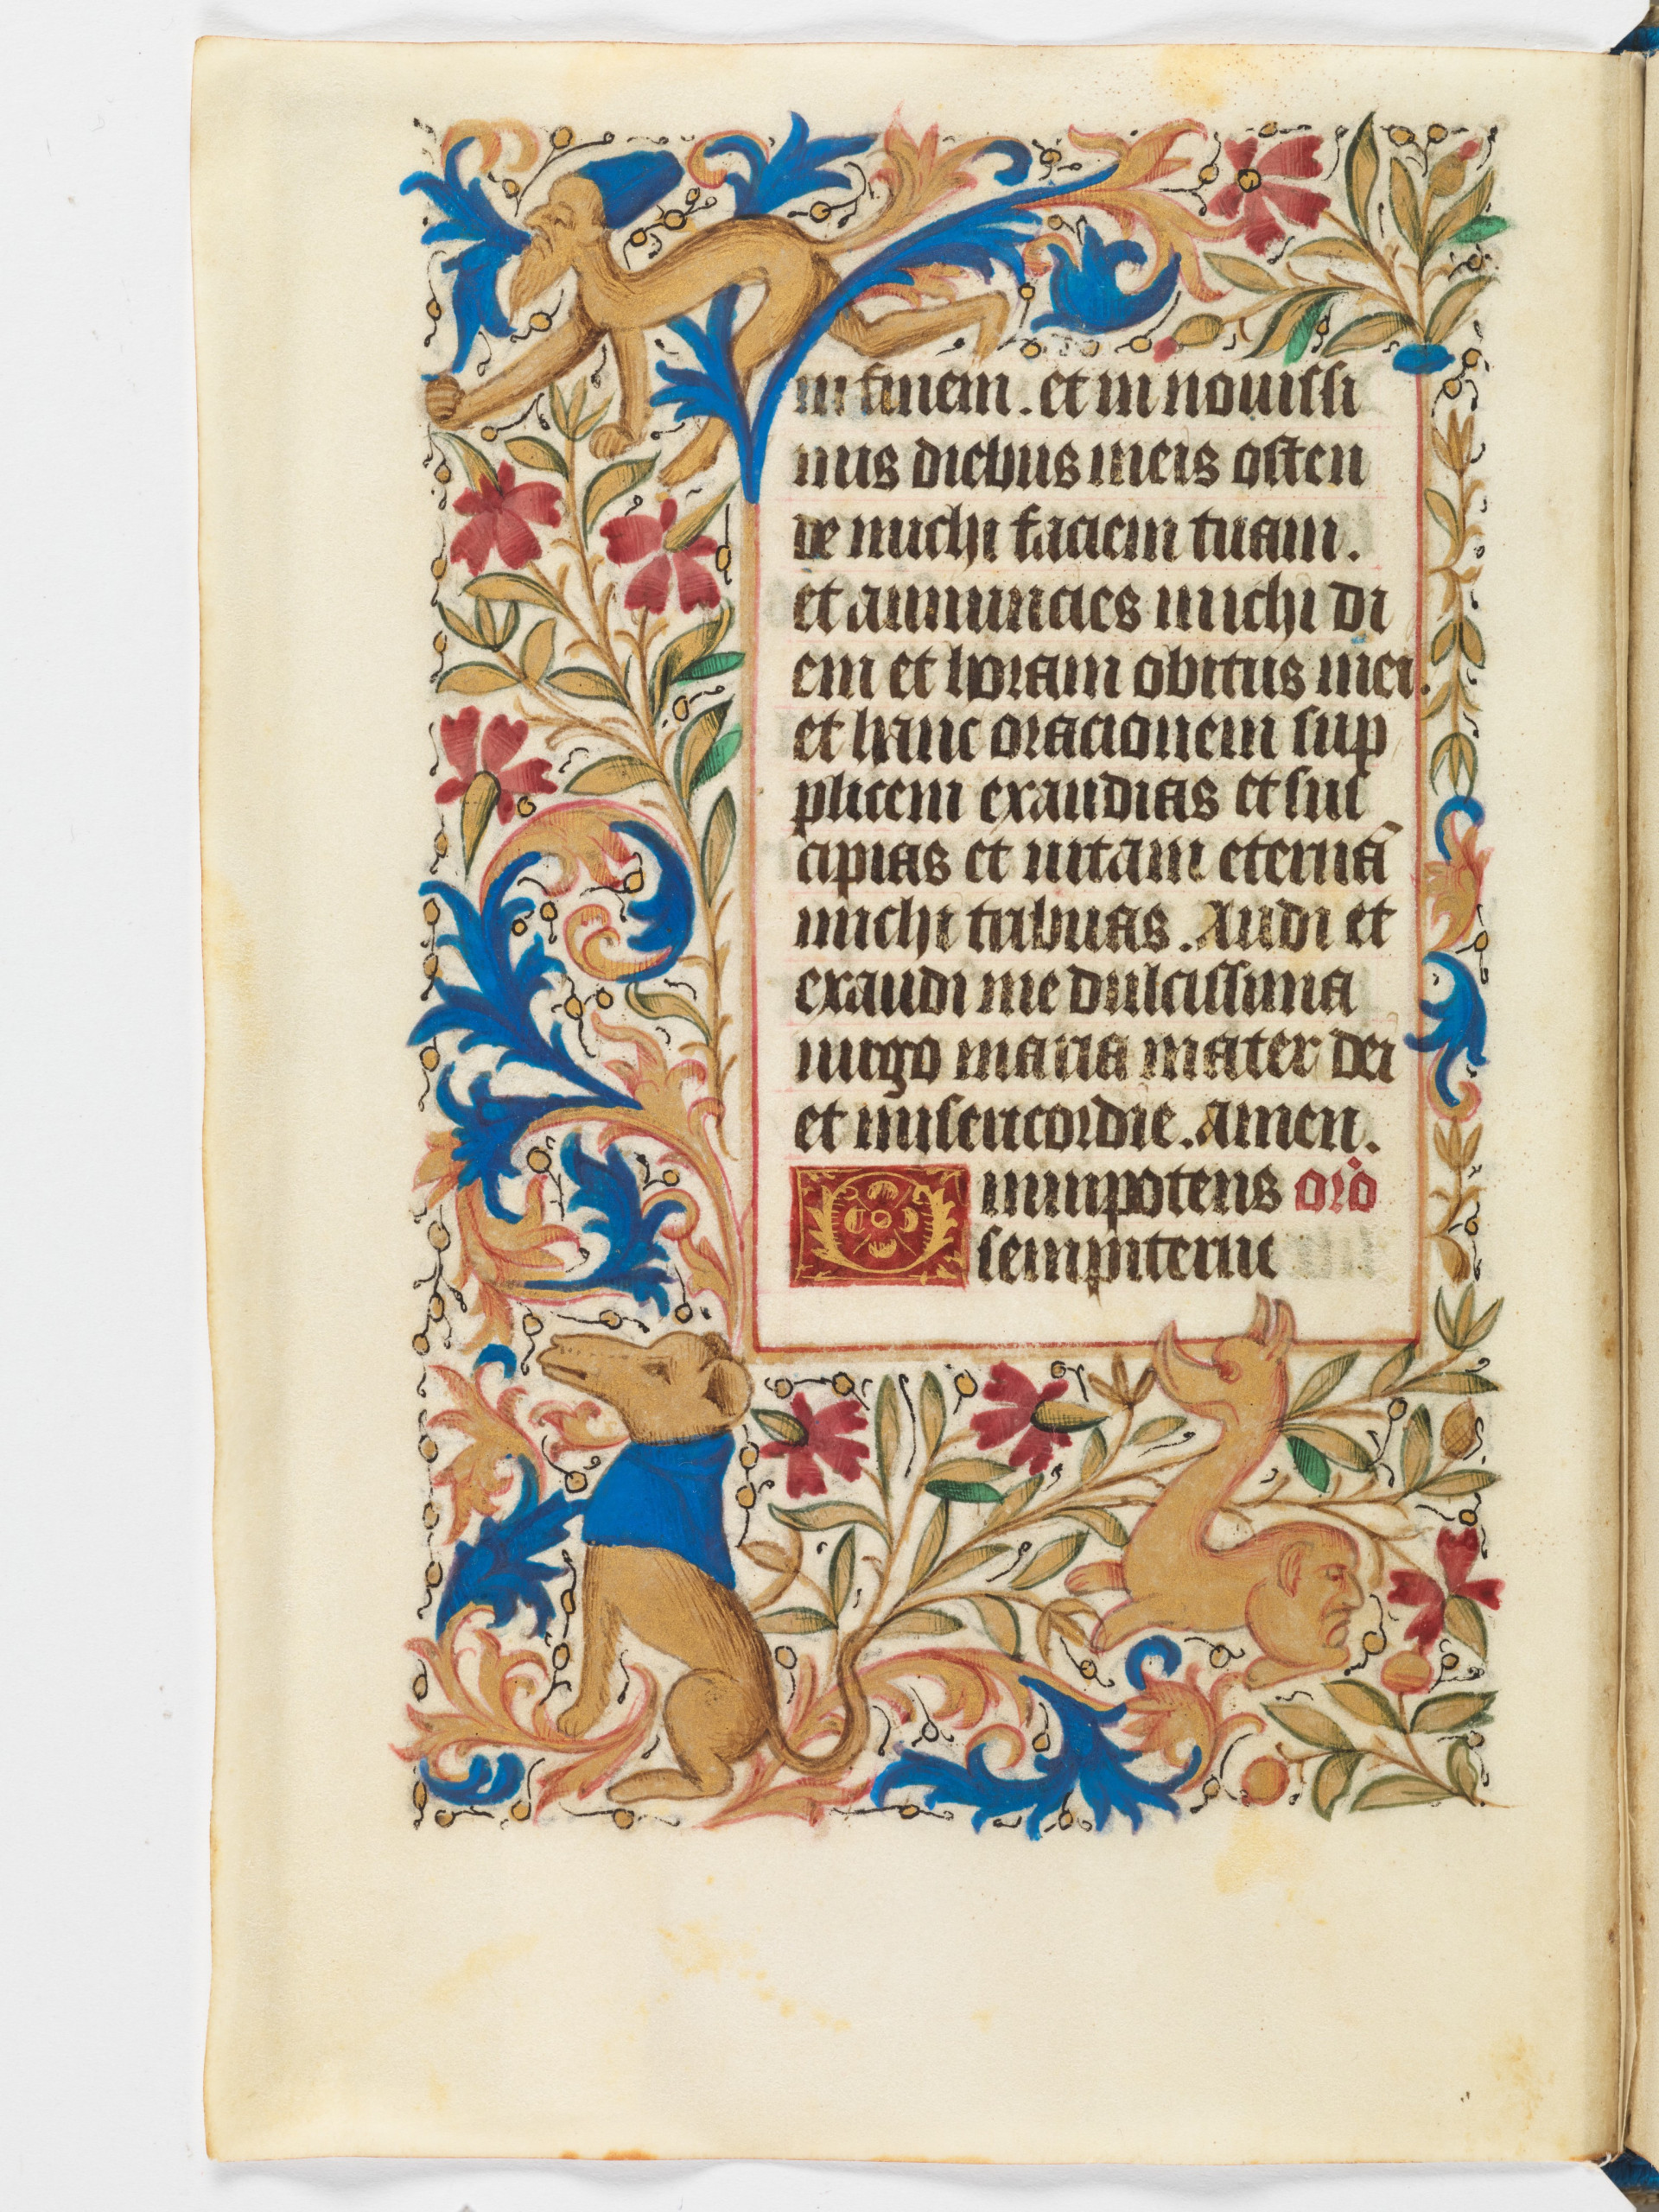 in finem. et in nouissi
mis diebus meis osten
de michi faciem tuam.
et annuncies michi di
em et horam obitus mei.
et hanc oracionem sup
plicem exaudias et sus
cipias et uitam eternā
michi tribuas. Audi et
exaudi me dulcissima
uirgo maria mater dei
et misericordie. Amen.
Omnipotens orō
sempiterne